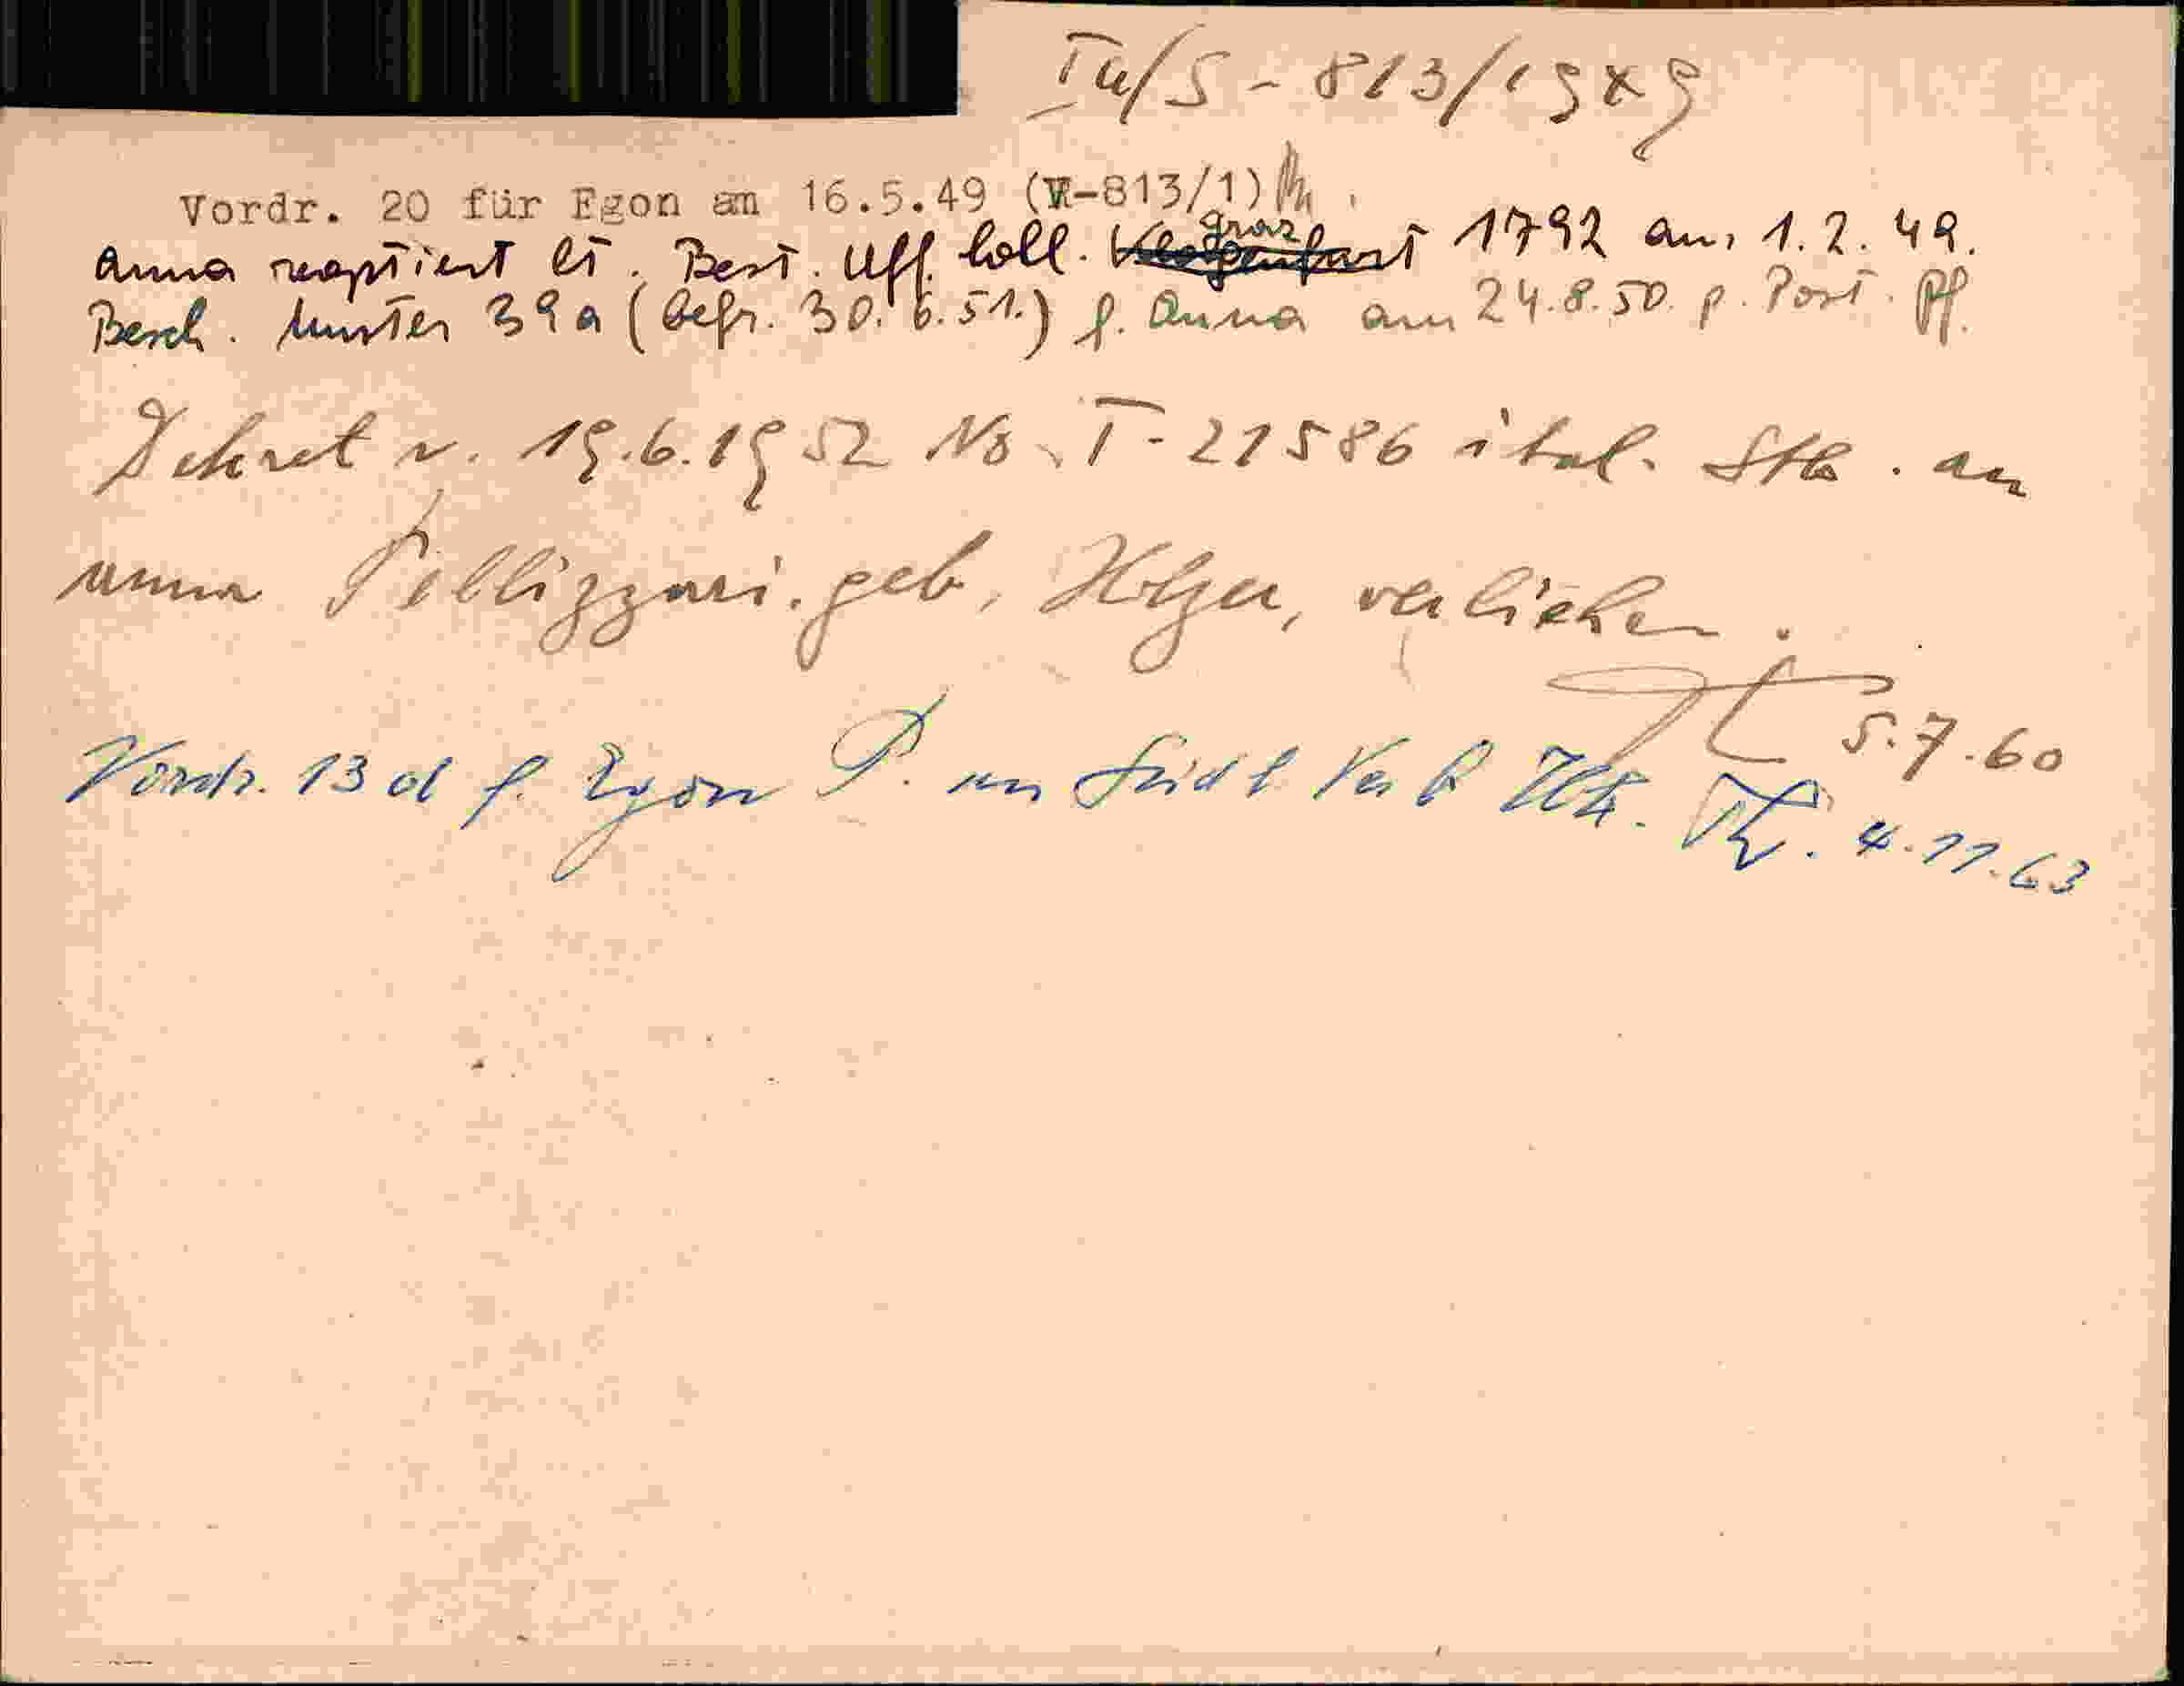 IV/S - 813/1949
Vordr. 20 für Egon am 16.5.49 (W-813/1)
Graz
Anna reoptiert lt. Best. Uff. Coll. Klagenfurt 1792 am 1.2.49.
Besch. Muster 39a (befr. 30.6.51.) f. Anna am 24.8.50. p. Post. Pf.
Dekret v. 19.6.1952 No. T-21586 ital. Stb. an
Anna Pellizzari, geb. Holzer, verliehen.
5.7.60
Vordr. 13 d f. Egon P. an Südt Verb Ibk. 4.11.63